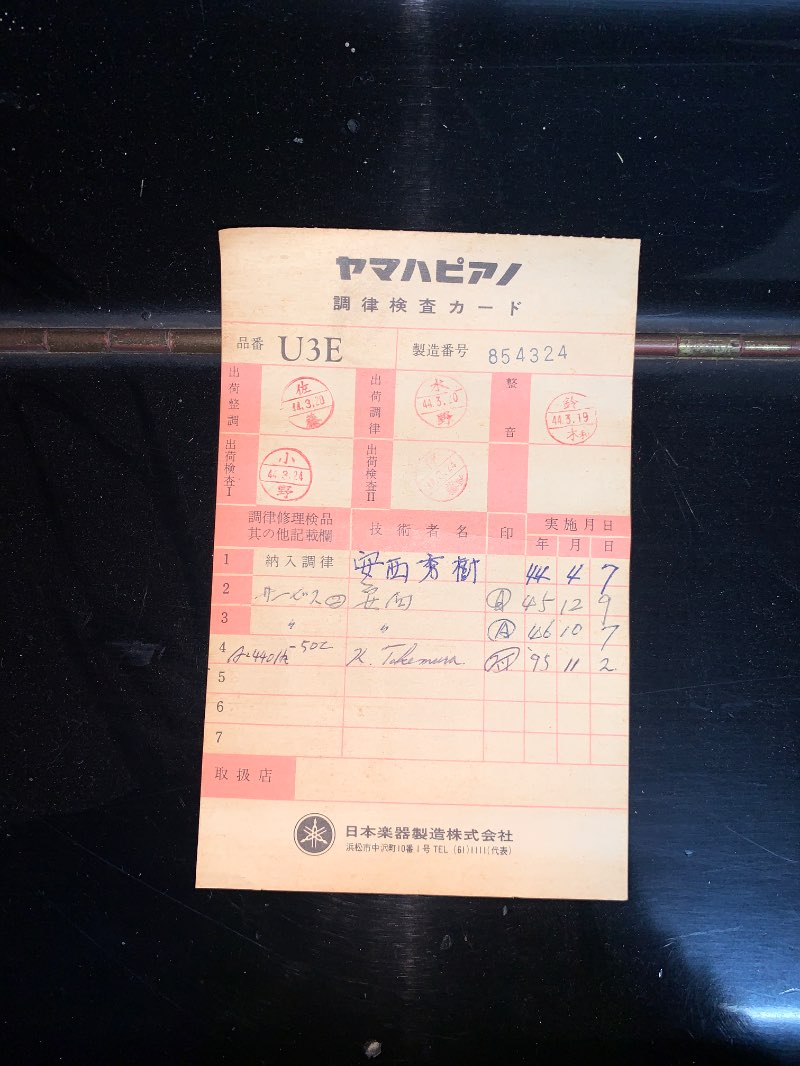 ヤマハピアノ
調律検査カード
品番 U3E 製造番号 854324
出荷整調 佐藤 44.3.20 出荷調律 44.3.20 野 整音 鈴木 44.3.19
出荷検査I 小野 44.3.24 出荷検査II
調律修理検品其の他記載欄 技術者名 印 実施月日
年 月 日
1 納入調律 安西秀樹 44 4 7
2 サービス 45 12 9
3 〃 〃 A 46 10 7
4 A-440 -50c K. Takemura '95 11 2
5
6
7
取扱店
日本楽器製造株式会社
浜松市中沢町10番1号 TEL (61)1111(代表)